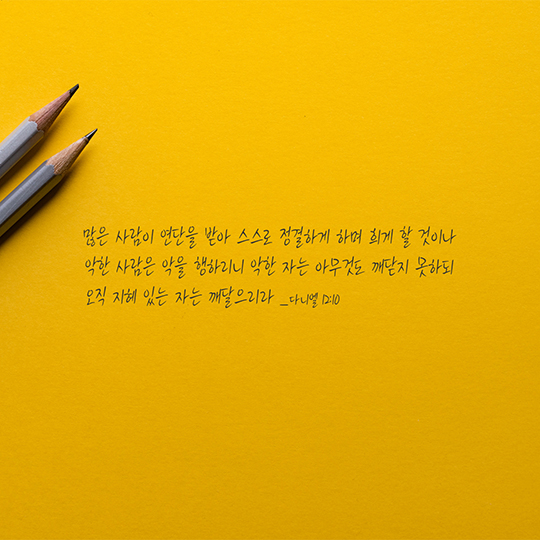 많은 사람이 연단을 받아 스스로 정결하게 하며 희게 할 것이나
악한 사람은 악을 행하리니 악한 자는 아무것도 깨닫지 못하되
오직 지혜 있는 자는 깨달으리라 _다니엘 12:10